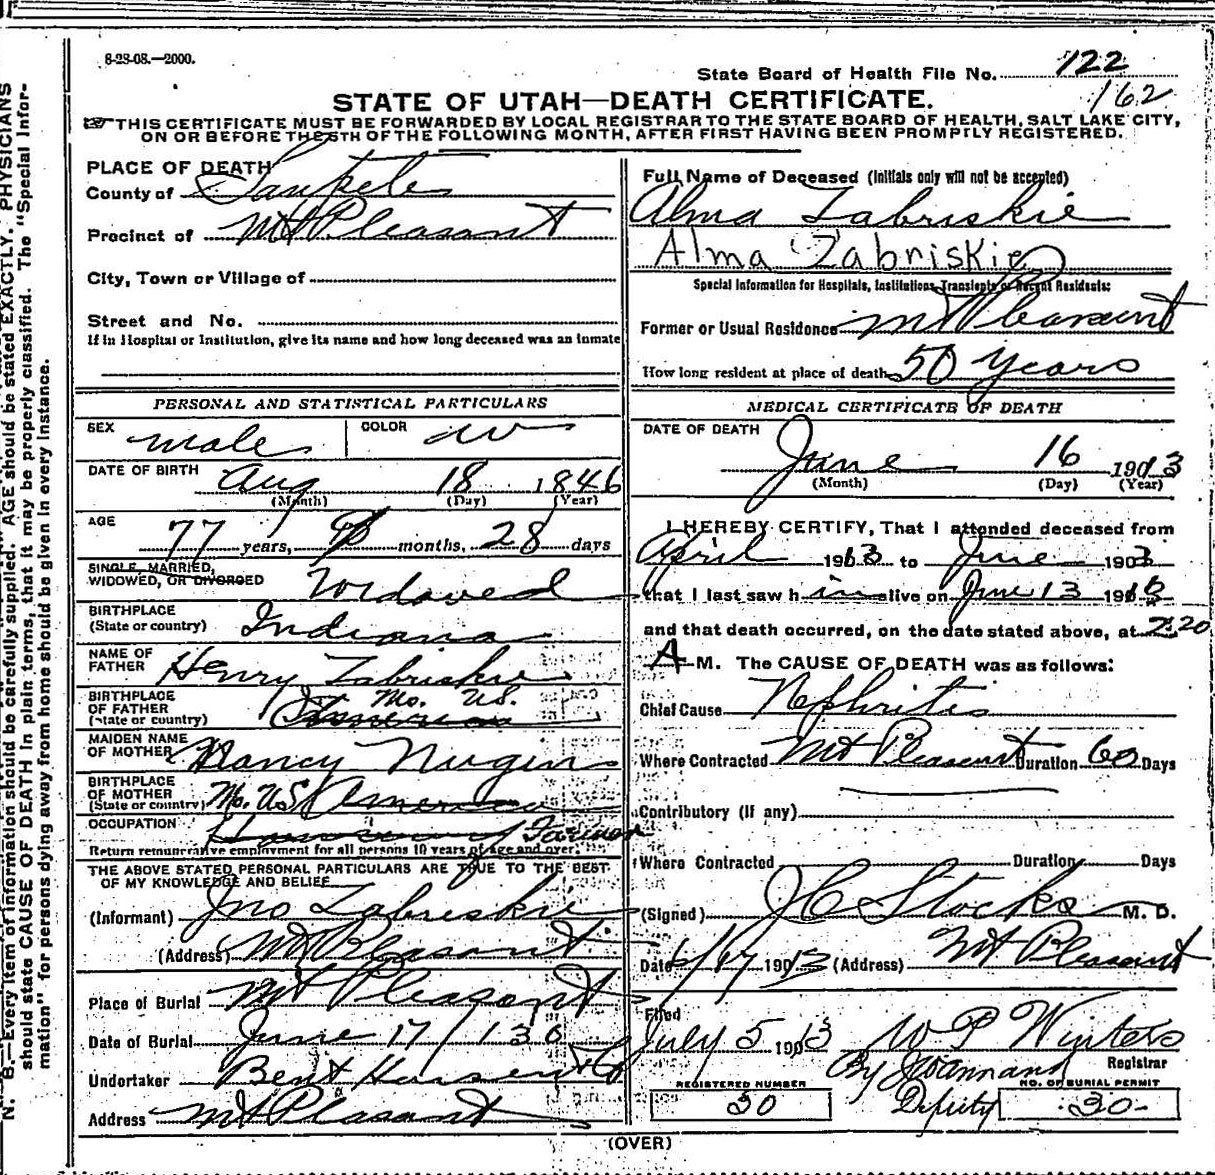 8-28-08.—2000.
State Board of Health File No. 122
162
STATE OF UTAH—DEATH CERTIFICATE.
THIS CERTIFICATE MUST BE FORWARDED BY LOCAL REGISTRAR TO THE STATE BOARD OF HEALTH, SALT LAKE CITY,
ON OR BEFORE THE 5TH OF THE FOLLOWING MONTH, AFTER FIRST HAVING BEEN PROMPTLY REGISTERED.
PLACE OF DEATH
County of Sanpete
Precinct of Mt Pleasant
City, Town or Village of
Street and No.
If in Hospital or Institution, give its name and how long deceased was an inmate
PERSONAL AND STATISTICAL PARTICULARS
SEX male COLOR w
DATE OF BIRTH Aug 18 1846
(Month) (Day) (Year)
AGE 77 years, months, 28 days
SINGLE, MARRIED,
WIDOWED, OR DIVORCED Widowed
BIRTHPLACE
(State or country) Indiana
NAME OF
FATHER Henry Zabriskie
BIRTHPLACE
OF FATHER Mo. US.
(State or country) America
MAIDEN NAME
OF MOTHER Nancy Nugin
BIRTHPLACE
OF MOTHER
(State or country) Mo. US America
OCCUPATION Farmer
Return remunerative employment for all persons 10 years of age and over.
THE ABOVE STATED PERSONAL PARTICULARS ARE TRUE TO THE BEST
OF MY KNOWLEDGE AND BELIEF
(Informant) Jno Zabriskie
(Address) Mt Pleasant
Place of Burial Mt Pleasant
Date of Burial June 17/13
Undertaker Bent Hansen
Address Mt Pleasant
Full Name of Deceased (Initials only will not be accepted)
Alma Zabriskie
Alma Zabriskie
Special Information for Hospitals, Institutions, Transients or Recent Residents:
Former or Usual Residence Mt Pleasant
How long resident at place of death 50 years
MEDICAL CERTIFICATE OF DEATH
DATE OF DEATH
June 16 19013
(Month) (Day) (Year)
I HEREBY CERTIFY, That I attended deceased from
April 1913 to June 1903
that I last saw him alive on June 13 1913
and that death occurred, on the date stated above, at 2:20
A M. The CAUSE OF DEATH was as follows:
Chief Cause Nephritis
Where Contracted Mt Pleasant Duration 60 Days
Contributory (if any)
Where Contracted Duration Days
(Signed) J C Stocks M. D.
Date 6/17 19013 (Address) Mt Pleasant
Filed
July 5 1903 W P Winters
Registrar
By
Deputy
REGISTERED NUMBER
30
NO. OF BURIAL PERMIT
30
(OVER)
N. B.—Every item of information should be carefully supplied. AGE should be stated EXACTLY. PHYSICIANS
should state CAUSE OF DEATH in plain terms, that it may be properly classified. The "Special Infor-
mation" for persons dying away from home should be given in every instance.